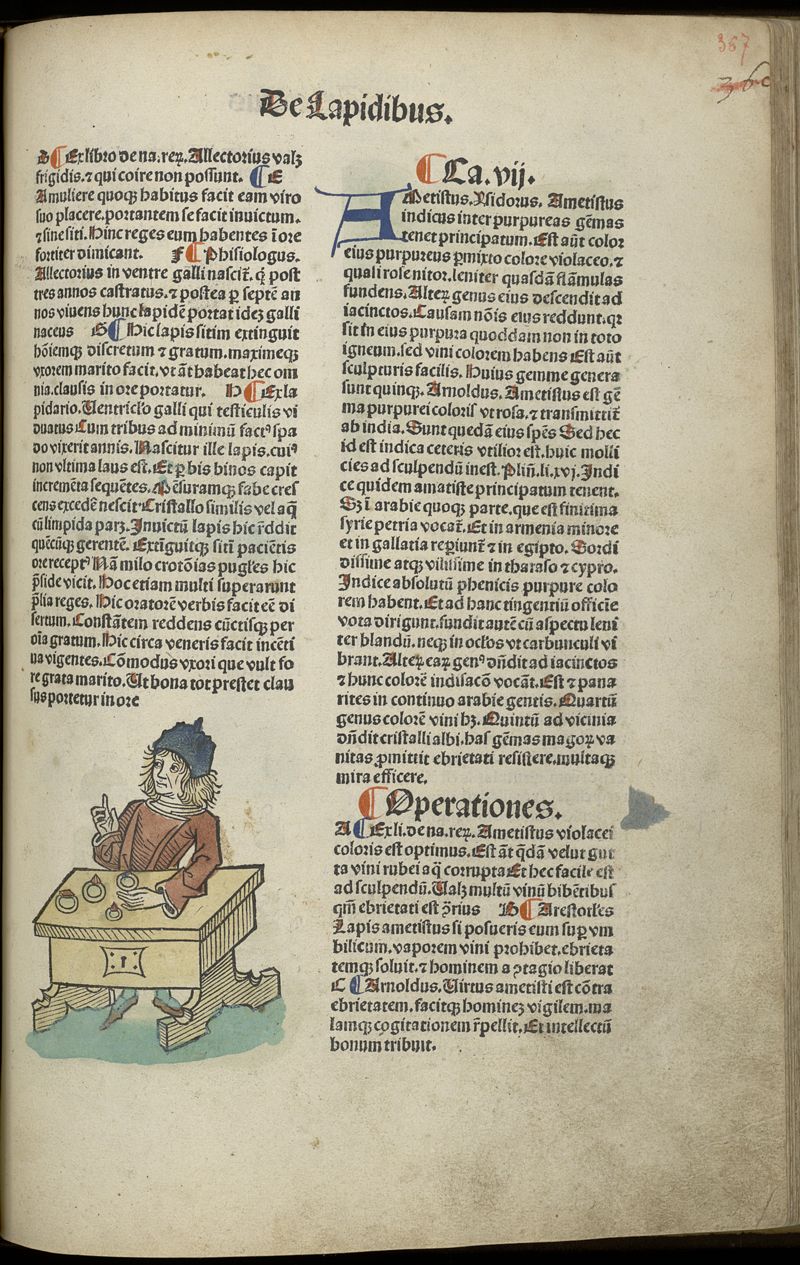 367
36c
De Lapidibus.
D ¶ Ex libro de na. reꝝ. Allectorius valꝫ
frigidis. ⁊ qui coire non possunt. ¶ E
A muliere quoqꝫ habitus facit eam viro
suo placere. portantem se facit inuictum.
⁊ sine siti. Hinc reges eum habentes ī ore
fortiter dimicant. F ¶ Phisiologus.
Allectorius in ventre galli nascit̃. q̃ post
tres annos castratus. ⁊ postea ꝑ septē an
nos viuens hunc lapidē portat ideꝫ galli
naceus G ¶ Hic lapis sitim extinguit
hoīemqꝫ discretum ⁊ gratum. maximeqꝫ
vxorem marito facit. vt āt habeat hec om
nia. clausis in ore portatur. H ¶ Ex la
pidario. Ventriclo galli qui testiculis vi
duatus Cum tribus ad minimū factꝰ spa
do vixerit annis. Nascitur ille lapis. cuiꝰ
non vltima laus est. Et ꝑ bis binos capit
incremēta sequētes. Mēsuramqꝫ fabe cres
cens excedē nescit Cristallo similis vel aq̄
cū limpida parꝫ. Inuictū lapis hic r̃ddit
quēcūqꝫ gerentē. Extīguitqꝫ sitī paciētis
ore recept Nā milo crotōias pugles hic
p̃side vicit. Hoc etiam multi superarunt
p̃lia reges. Hic oratorē verbis facit eē di
sertum. Constātem reddens cūctisqꝫ per
oīa gratum. Hic circa veneris facit incēti
ua vigentes. Cōmodus vxori que vult fo
re grata marito. Ut bona tot prestet clau
sus portetur in ore
¶ Ca. vij.
AMetistus. Ysidorus. Ametistus
indicus inter purpureas gēmas
tenet principatum. Est aūt color
eius purpureus ꝑmixto colore violaceo. ⁊
quali rose nitor. leniter quasdā flāmulas
fundens. Alteꝝ genus eius descendit ad
iacinctos. Causam nōis eius reddunt. qr
sit in eius purpura quoddam non in toto
igneum. sed vini colorem habens Est aūt
sculpturis facilis. Huius gemme genera
sunt quinqꝫ. Arnoldus. Ametistus est gē
ma purpurei coloris vt rosa. ⁊ transmittit̃
ab india. Sunt quedā eius spēs Sed hec
id est indica ceteris vtilior est. huic molli
cies ad sculpendū inest. Plin̄. li. xvj. Indi
ce quidem amatiste principatum tenent.
Sꝫ ī arabie quoqꝫ parte. que est finitima
syrie petria vocat̃. Et in armenia minore
et in gallatia reꝑiunt̃ ⁊ in egipto. Sordi
dissime atqꝫ vilissime in tharaso ⁊ cypro.
Indice absolutū phenicis purpure colo
rem habent. Et ad hanc tingentiū officie
vota dirigunt. fundit autē cū aspectu leni
ter blandū. neqꝫ in oclos vt carbunculi vi
brant. Alteꝝ eaꝝ genꝰ dn̄dit ad iacinctos
⁊ hunc colorē indi sacō vocāt. Est ⁊ pana
rites in continuo arabie gentis. Quartū
genus colorē vini hꝫ. Quintū ad vicinia
dn̄dit cristalli albi. has gēmas magoꝝ va
nitas ꝓmittit ebrietati resistere. multaqꝫ
mira efficere.
¶ Operationes.
A ¶ Ex li. de na. reꝝ. Ametistus violacei
coloris est optimus. Est āt q̄dā velut gut
ta vini rubei aq̄ corrupta Et hec facile est
ad sculpendū. Valꝫ multū vinū bibētibus
qm̄ ebrietati est ꝯrius B ¶ Arestotles
Lapis ametistus si posueris eum suꝑ vm
bilicum. vaporem vini prohibet. ebrieta
temqꝫ soluit. ⁊ hominem a ꝯtagio liberat
C ¶ Arnoldus. Virtus ametisti est cōtra
ebrietatem. facitqꝫ homineꝫ vigilem. ma
lamqꝫ cogitationem r̃pellit. Et intellectū
bonum tribuit.